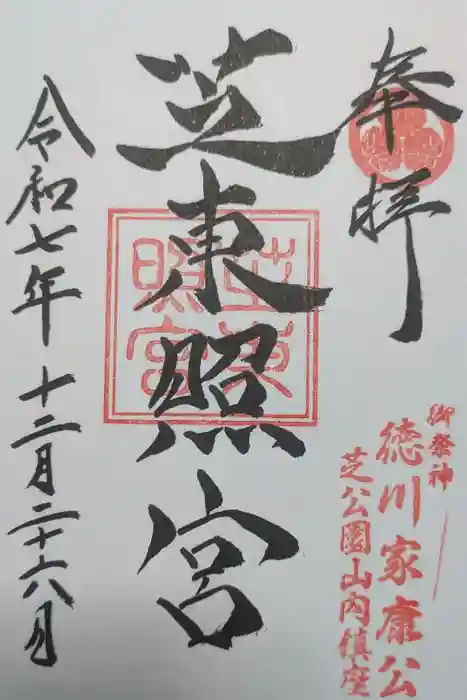 奉拝
御祭神
徳川家康公
芝公園山内鎮座
芝東照宮
芝東照宮
令和七年十二月二十六日